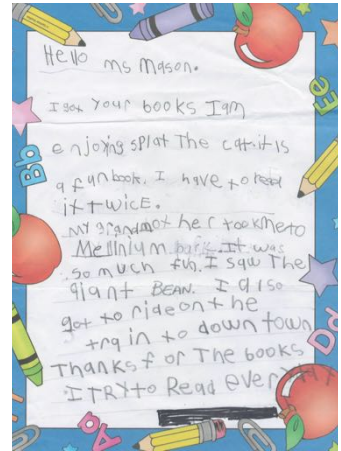 Hello ms mason.
I got your books I am
enjoying splat The cat. it is
a fun book. I have to read
it twicE.
my grandmother took me to
Mellinium park. It was
so much fun. I saw The
giant BEAN. I also
got to ride on the
train to down town
Thanks for The books
I TRY to Read every
Bb
Ee
Dd